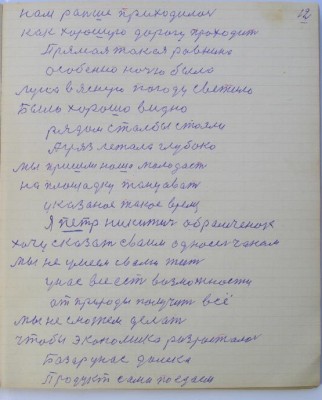 12
нам раньше приходилос
как хорошую дорогу проходит
Прямая такая равнина
особенно ночю было
луна в ясную погоду светило
Было хорошо видно
рядом сталбы стояли
глубоко
мы пришли наша молодаст
на площадку танцават
указаное такое время
Я петр никитич обрамченок
хочу сказат сваим односелчанам
мы не умеем свами жит
унас вее ест возможности
от природы получит всё
мы не сможем делат
чтобы экономика разросталас
Базар унас далека
Продукт сама поедаем